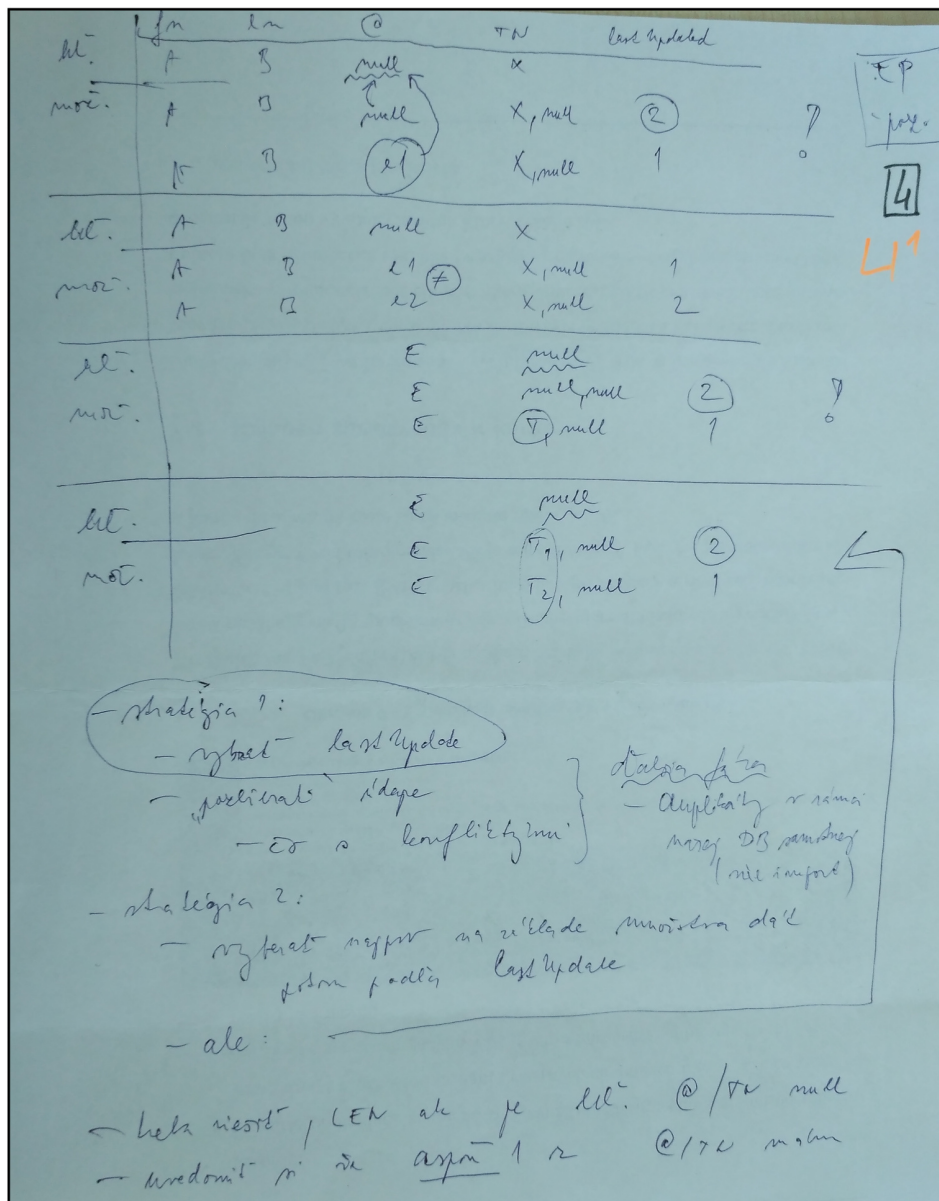 fn ln @ TN last updated
A B null X
A B null X, null 2 !
A B e1 X, null 1
EP
4
A B null X
A B e1 ≠ X, null 1
A B e2 X, null 2
E null
E null, null 2 !
E T, null 1
E null
E T1, null 2
E T2, null 1
- stratégia 1:
- vybrať last Update
- "pozbierať údaje
- čo s konfliktnými
ďalšia fáza
- duplikáty v rámci
našej DB samotnej
(nie import)
- stratégia 2:
- vyberať najprv na základe množstva dát
potom podľa last Update
- ale:
- treba riešiť, LEN ak je @/TN null
- uvedomiť si že aspoň 1 z @/TN mám